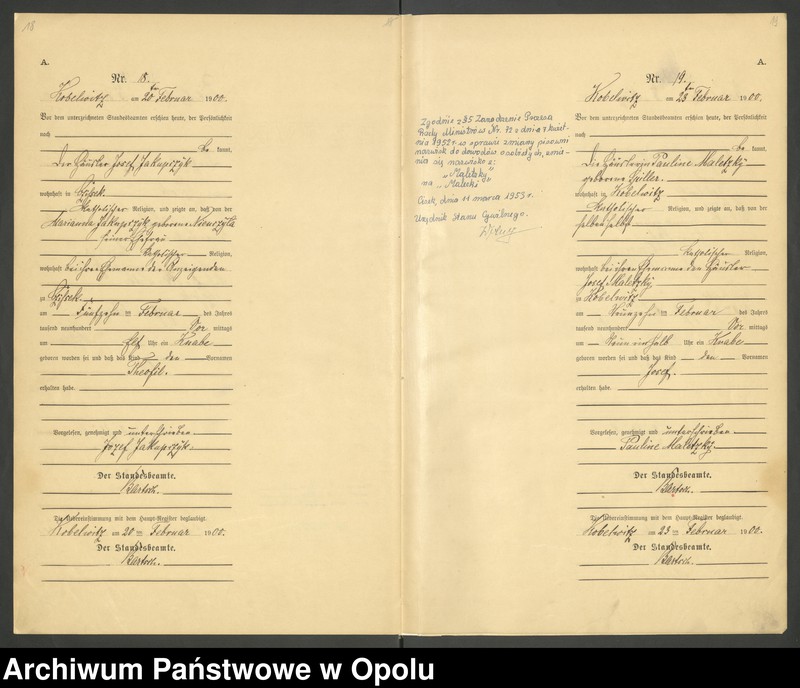 18
A.
Nr. 18.
Kobelwitz am 20ten Februar 1900.
Vor dem unterzeichneten Standesbeamten erschien heute, der Persönlichkeit
nach
be kannt,
Der Häusler Josef Jakuprzÿk
wohnhaft in Czissek
Katholischer Religion, und zeigte an, daß von der
Marianna Jakuprzÿk geborene
seiner Ehefrau
Katholischer Religion,
wohnhaft bei ihrem Ehemanne dem Anzeigenden
zu Czissek
am fünfzehn ten Februar des Jahres
tausend neunhundert Vor mittags
um elf Uhr ein Knabe
geboren worden sei und daß das Kind den Vornamen
Theofil.
erhalten habe.
Vorgelesen, genehmigt und unterschrieben
Jozef Jakuprzÿk.
Der Standesbeamte.
Bartsch.
Die Uebereinstimmung mit dem Haupt-Register beglaubigt.
Kobelwitz am 20 ten Februar 1900.
Der Standesbeamte.
Bartsch.
Zgodnie z §5 Zarządzenie Prezesa
Rady Ministrów Nr. 72 z dnia 7 kwiet-
nia 1952 r. w sprawie zmiany pisowni
nazwisk do dowodów osobistych, zmie-
nia się nazwisko z:
"Maletzky"
na "Malecki"
Cisek, dnia 11 marca 1953 r.
Urzędnik Stanu Cywilnego.
19
A.
Nr. 19.
Kobelwitz am 23ten Februar 1900.
Vor dem unterzeichneten Standesbeamten erschien heute, der Persönlichkeit
nach
be kannt,
Die Häuslerin Pauline Maletzkÿ
geborene
wohnhaft in Kobelwitz
Katholischer Religion, und zeigte an, daß von der
selben selbst
Katholischer Religion,
wohnhaft bei ihrem Ehemanne dem Häusler
Josef Maletzkÿ
in Kobelwitz
am neunzehn ten Februar des Jahres
tausend neunhundert Vor mittags
um neun einhalb Uhr ein Knabe
geboren worden sei und daß das Kind den Vornamen
Josef.
erhalten habe.
Vorgelesen, genehmigt und unterschrieben
Pauline Maletzkÿ.
Der Standesbeamte.
Bartsch.
Die Uebereinstimmung mit dem Haupt-Register beglaubigt.
Kobelwitz am 23 ten Februar 1900.
Der Standesbeamte.
Bartsch.
Archiwum Państwowe w Opolu